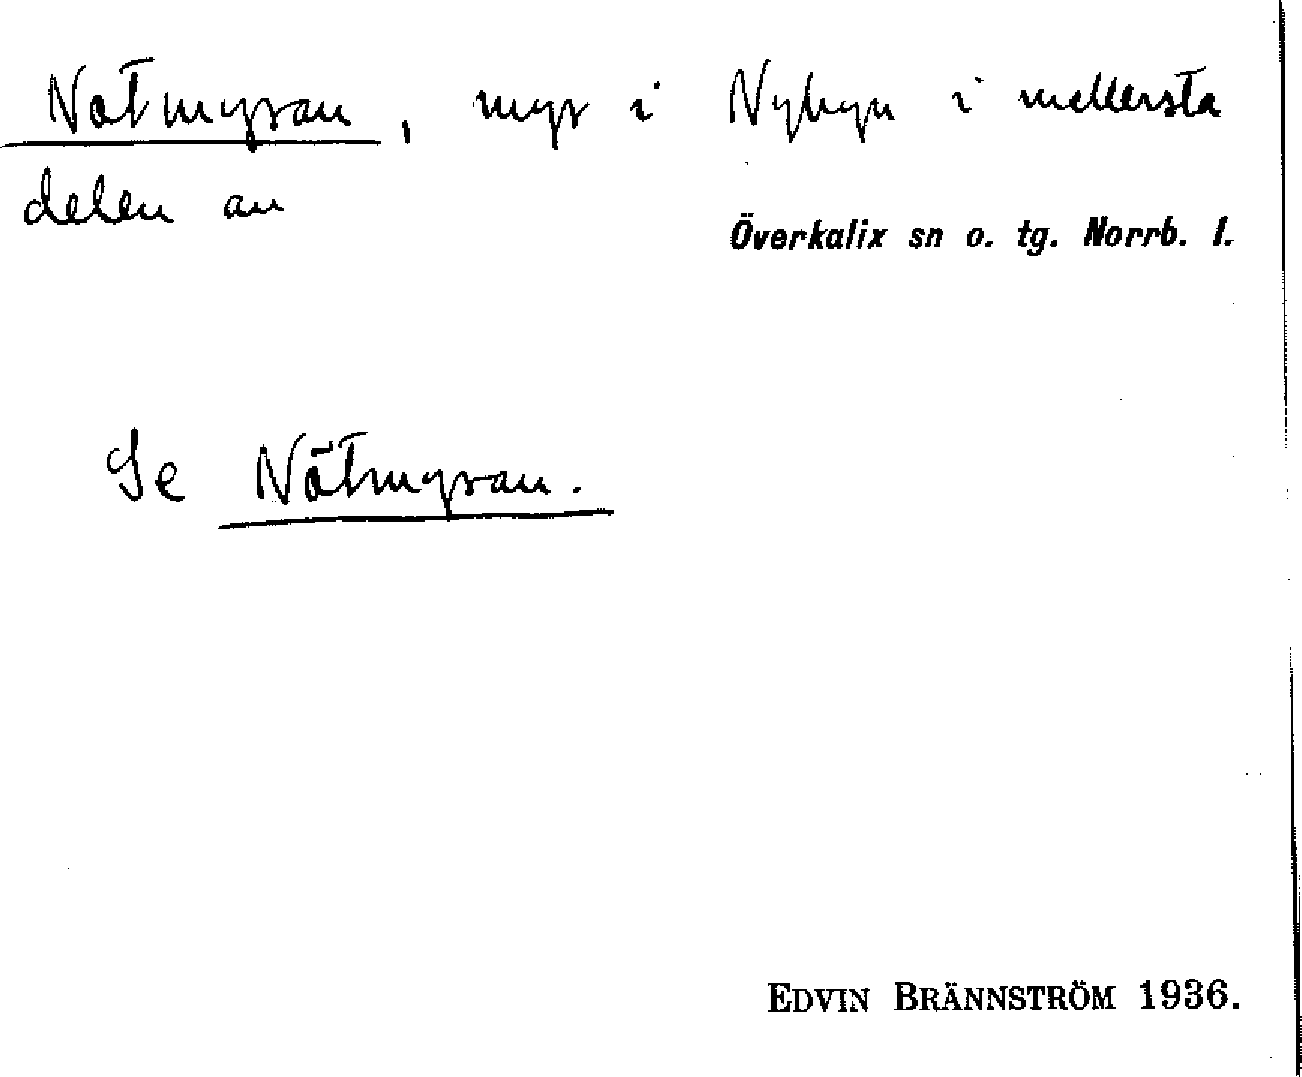 Notmyran, myr i Nybyn i mellersta
delen av
Överkalix sn o. tg. Norrb. l.
Se Nötmyran.
EDVIN BRÄNNSTRÖM 1936.